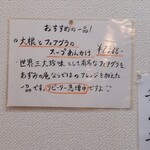 おすすめの一品!
大根とフォアグラの
スープあんかけ
世界三大珍味として有名なフォアグラを
あずみの庵ならではのアレンジを加えた
一品です。リピーター急増中ですよ